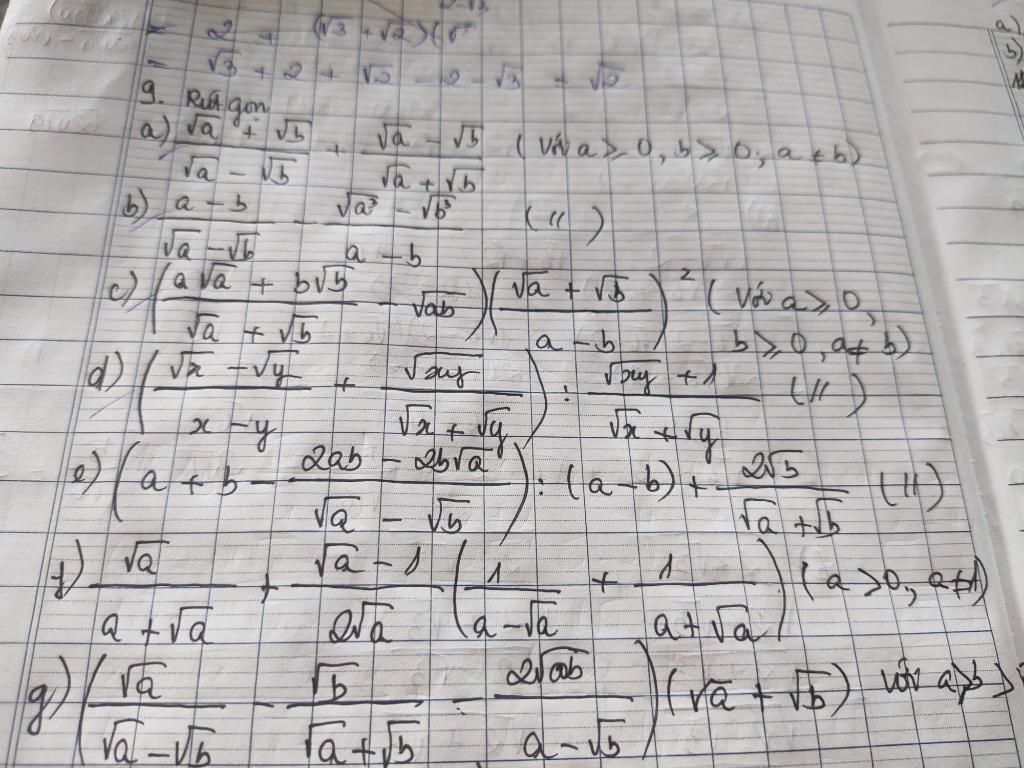 = 2 + (√3 + √2)(√
= √3 + 2 + √2 - 2 - √3 = √2
9. Rút gọn
a) (√a + √b)/(√a - √b) + (√a - √b)/(√a + √b) (Với a ≥ 0, b ≥ 0, a ≠ b)
b) (a - b)/(√a - √b) - (√a³ - √b³)/(a - b) (//)
c) ((a√a + b√b)/(√a + √b) - √ab)((√a + √b)/(a - b))² (Với a ≥ 0,
b ≥ 0, a ≠ b)
d) ((√x - √y)/(x - y) + √xy/(√x + √y)) : (√xy + 1)/(√x + √y) (//)
e) (a + b - (2ab - 2b√a)/(√a - √b)) : (a - b) + 2√b/(√a + √b) (//)
f) √a/(a + √a) + (√a - 1)/(2√a) (1/(a - √a) + 1/(a + √a)) (a > 0, a ≠ 1)
g) (√a/(√a - √b) - √b/(√a + √b) - 2√ab/(a - √b))(√a + √b) với a > b >
a)
b)